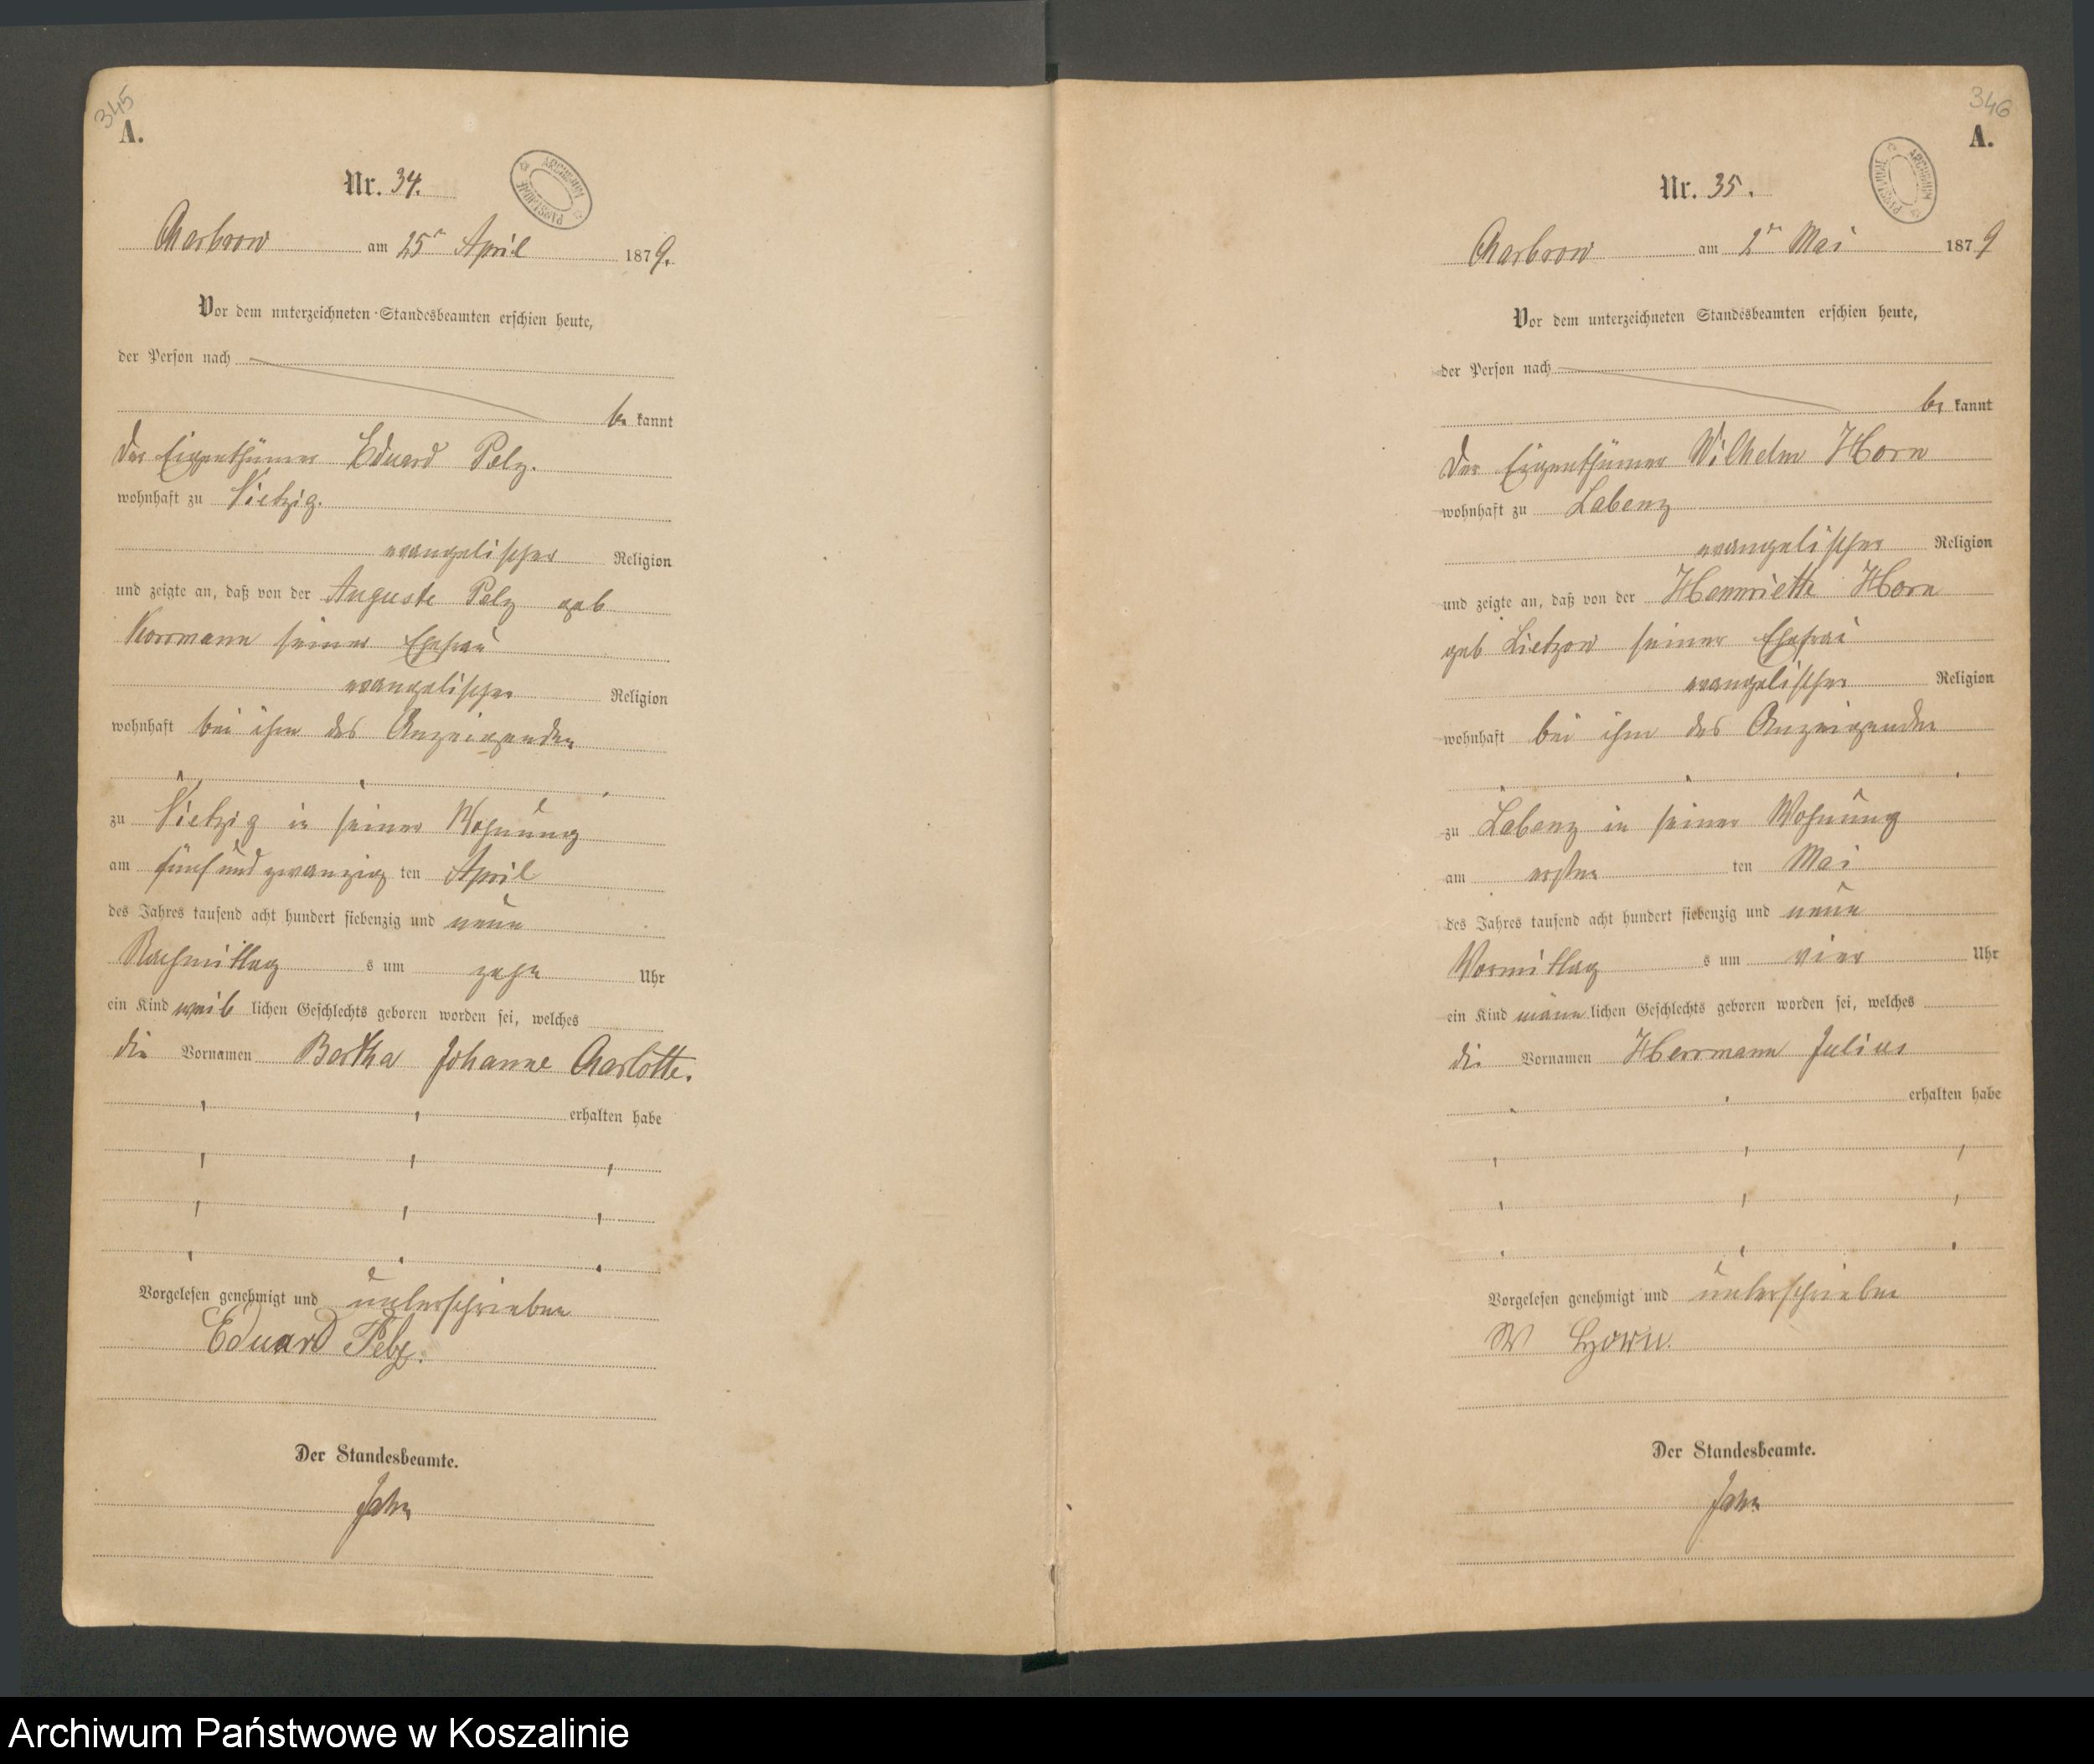 345
A.
Nr. 34.
ARCHIWUM PAŃSTWOWE
Charbrow am 25n April 1879.
Vor dem unterzeichneten Standesbeamten erschien heute,
der Person nach
be kannt
Der Eigenthümer Eduard Pelz.
wohnhaft zu Vietzig.
evangelischer Religion
und zeigte an, daß von der Auguste Pelz geb
Korrmann seiner Ehefrau
evangelischer Religion
wohnhaft bei ihm des Anzeigenden
zu Vietzig in seiner Wohnung
am fünf und zwanzig ten April
des Jahres tausend acht hundert siebenzig und neun
Nachmittag s um zehn Uhr
ein Kind weib lichen Geschlechts geboren worden sei, welches
die Vornamen Bertha Johanne Charlotte.
erhalten habe
Vorgelesen genehmigt und unterschrieben
Eduard Pelz.
Der Standesbeamte.
Jahn
346
A.
Nr. 35.
ARCHIWUM PAŃSTWOWE
Charbrow am 2n Mai 1879
Vor dem unterzeichneten Standesbeamten erschien heute,
der Person nach
be kannt
Der Eigenthümer Wilhelm Horn
wohnhaft zu Labenz
evangelischer Religion
und zeigte an, daß von der Hennriette Horn
geb Lietzow seiner Ehefrau
evangelischer Religion
wohnhaft bei ihm des Anzeigenden
zu Labenz in seiner Wohnung
am ersten ten Mai
des Jahres tausend acht hundert siebenzig und neun
Vormittag s um vier Uhr
ein Kind männ lichen Geschlechts geboren worden sei, welches
die Vornamen Herrmann Julius
erhalten habe
Vorgelesen genehmigt und unterschrieben
W Horn.
Der Standesbeamte.
Jahn
Archiwum Państwowe w Koszalinie